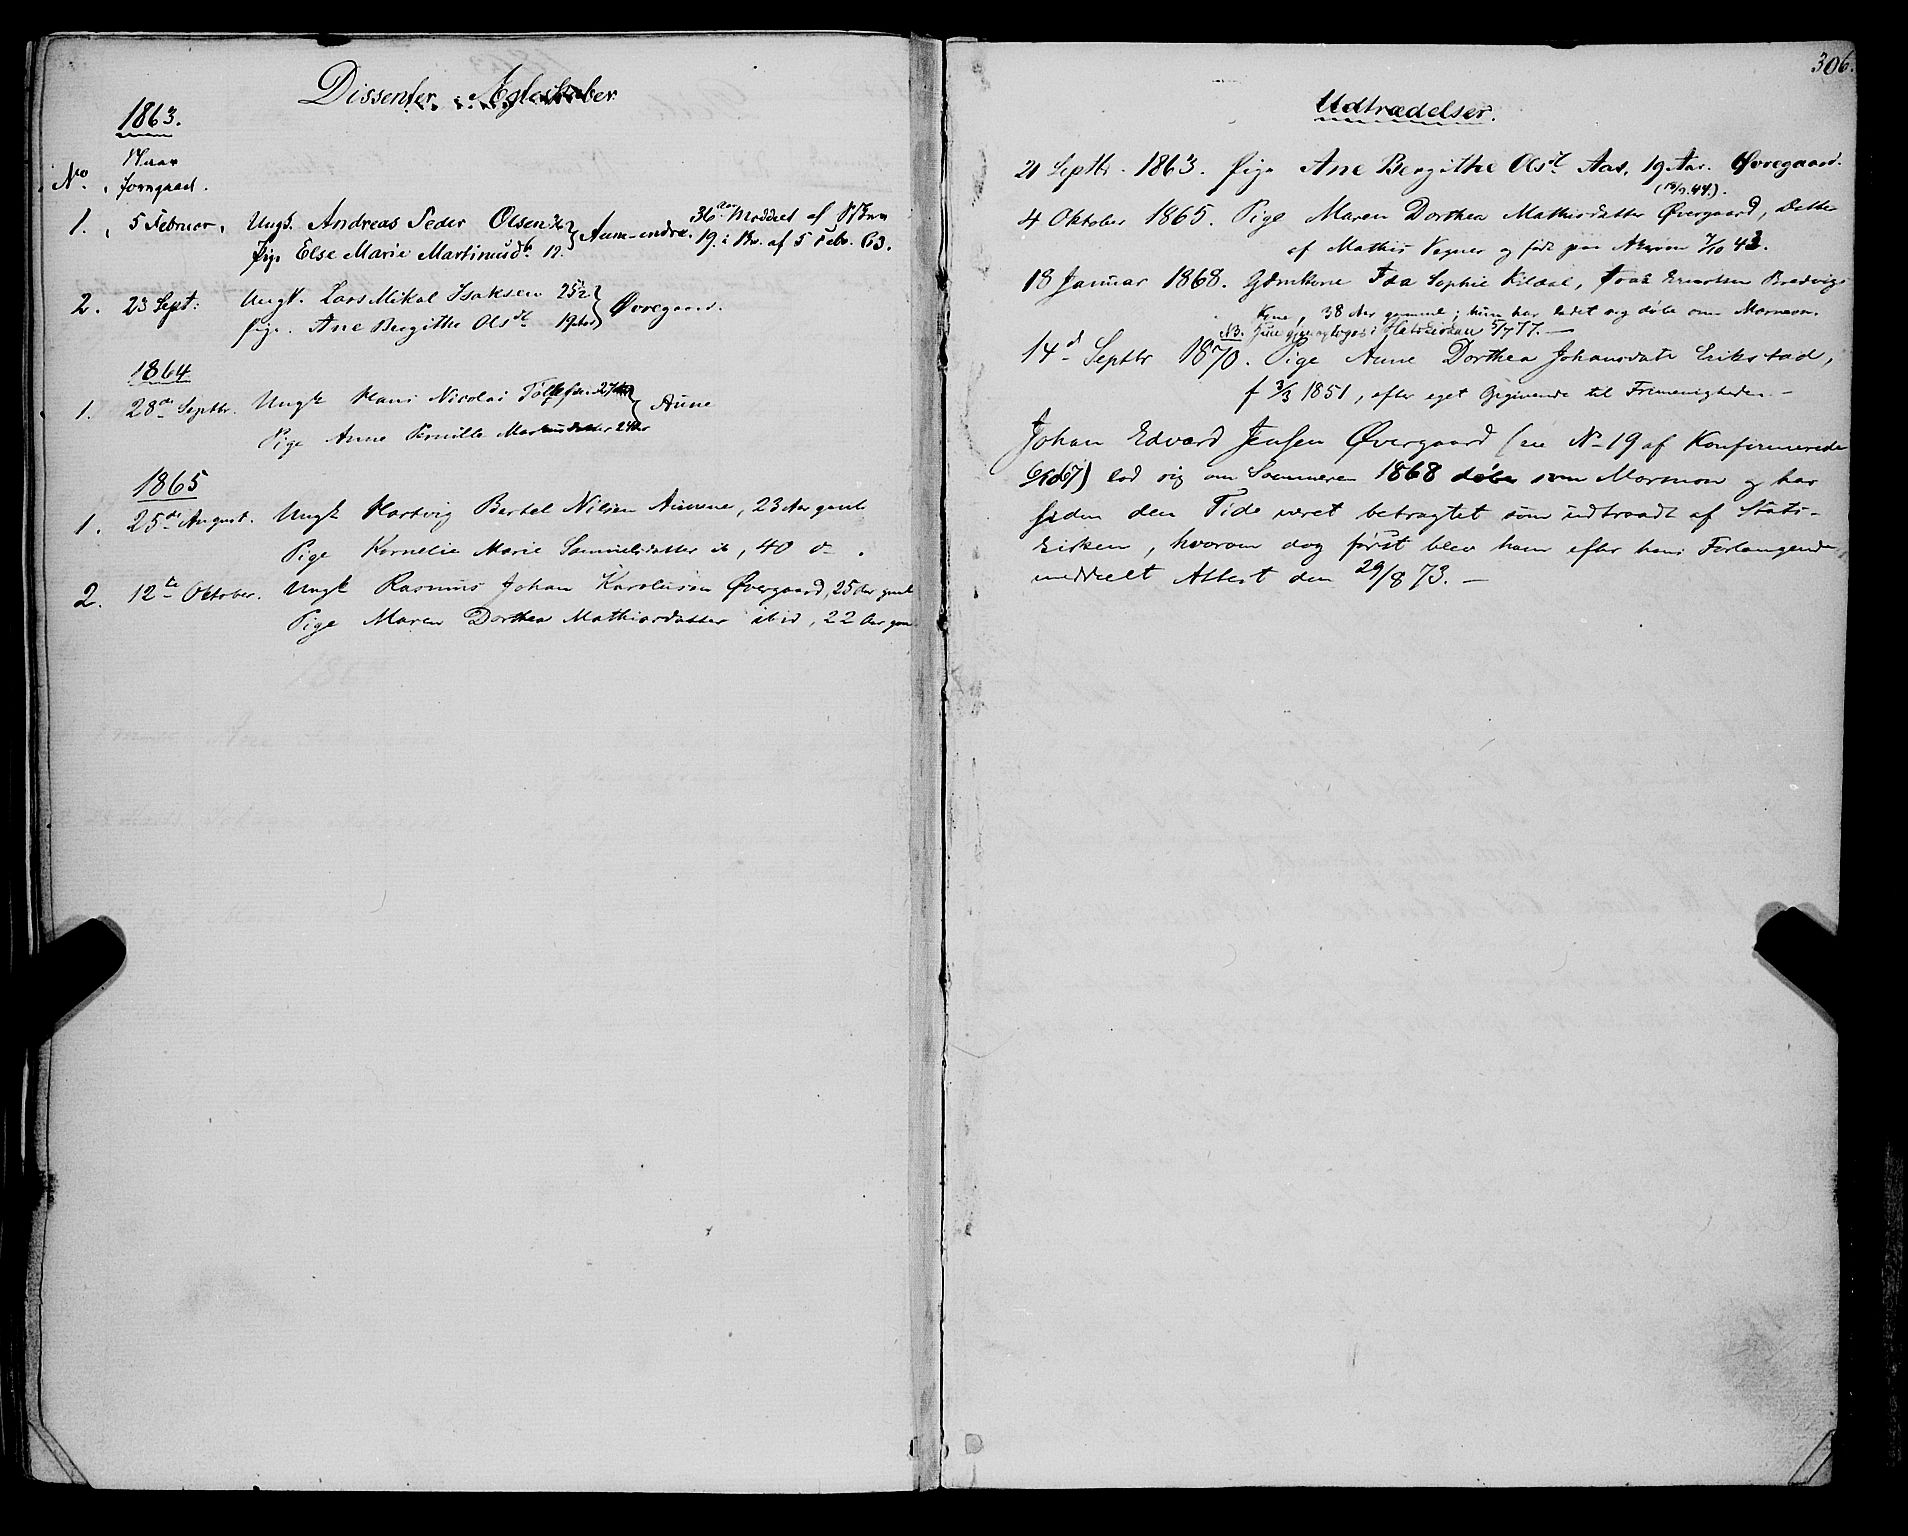 Dissenter Ægteskaber
1863.
No.
1. 5 Februar, Ungk. Andreas Peder Olsen
Pige Else Marie Martinusd. 19.
19. i Br. af 5 Febr. 63.
2. 23 Sept: Ungk. Lars Mikal Isaksen 25½
Pige. Ane Bergithe Olsdt. 19 Aar } Øvregaard.
1864
1. 28de Septbr. Ungk Hans Nicolai 27 Aar
Pige Anne Pernille 24 Aar } Aune
1865
1. 25de August. Ungk Hartvig Bertel Nilsen Aunene, 23 Aar gaml
Pige Kornelia Marie Samuelsdatter ib, 40 d.
2. 12te Oktober. Ungk Rasmus Johan Karolusen Øvergaard, 25 Aar gaml
Pige Maren Dorthea Mathiasdatter ibid, 22 Aar gam
306.
Udtrædelser.
21 Septbr. 1863. Pige Ane Bergithe Olsdt Aas, 19 Aar. Øvregaard.
4 Oktober 1865. Pige Maren Dorthea Mathisdatter Øvergaard, Datter
af Mathis Vegner og født paa 7/10 43.
18 Januar 1868. Gjømkone Ida Sophie Kildal,
Kone, 38 Aar gammel; hun har ladet sig døbe som Mormon.
NB. 77.
14d Septbr 1870. Pige Anne Dorthea Johansdatr Erikstad,
f 3/3 1851, efter eget Opgivende til Frimenigheden.
Johan Edvard Jensen Øvergaard (se No 19 af Konfirmerede
1867) lod sig om Sommeren 1868 døbe som Mormon og har
siden den Tid været betragtet som udtraadt af Stats-
kirken, hvorom dog først blev ham efter hans Forlangende
meddeelt Attest den 29/8 73.